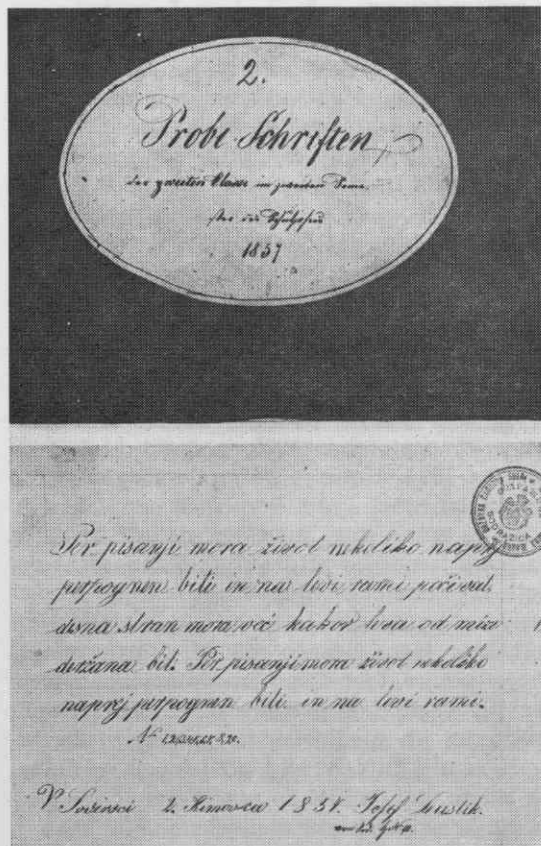 2.
Probe-Schriften
der zweiten Klasse im zweiten Seme-
ster des
1857
Per pisanji mora život nekeliko naprej
perpognen biti in na levi rami počivat.
desna stran mora več kakor leva od mize
deržana bit. Per pisanji mora život nekeliko
naprej perpognen biti in na levi rami.
V 2. Kimovca 1857. Josef